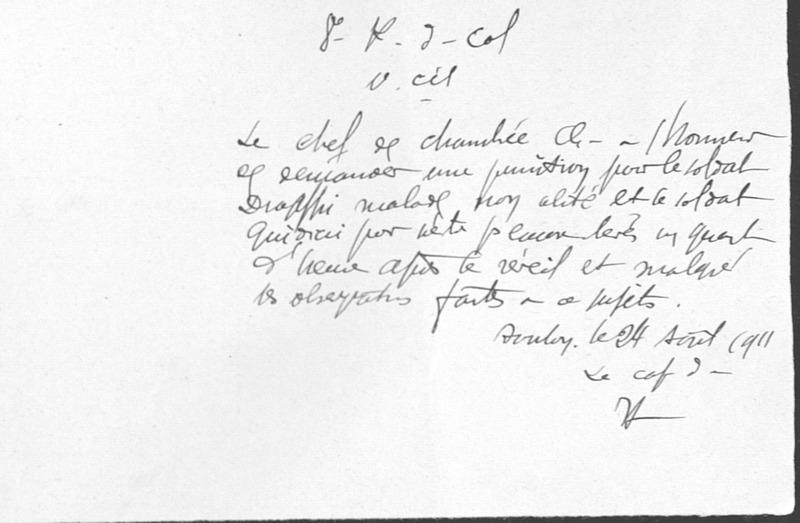 8- R. d- Col
v. cié
Le chef de chambrée Ch- a l'honneur
de demander une punition pour le soldat
malade non alité et le soldat
pour n'être levés un quart
d'heure après le réveil et malgré
les observations faites a ce sujets.
Toulon. le 24 Août 1911
Le cap d-